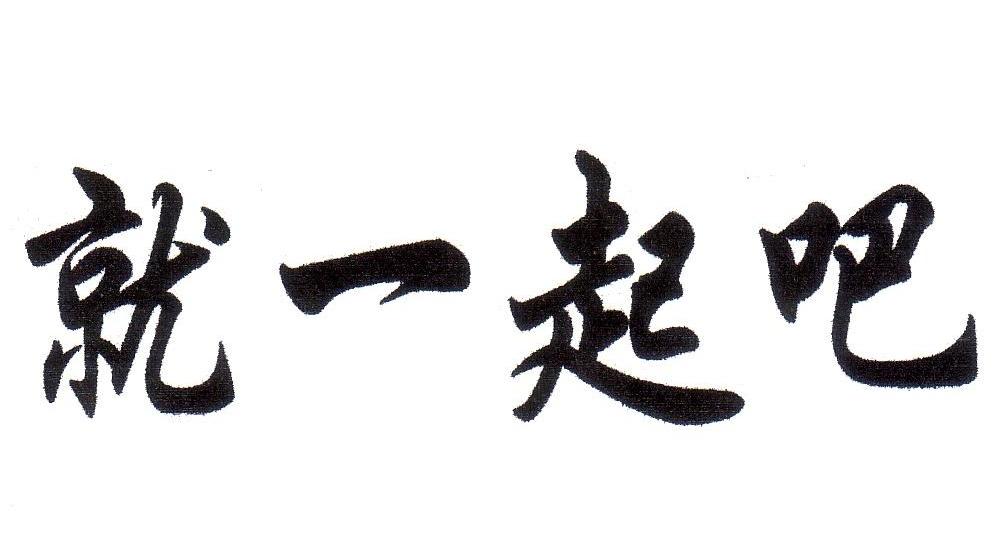 就一起吧